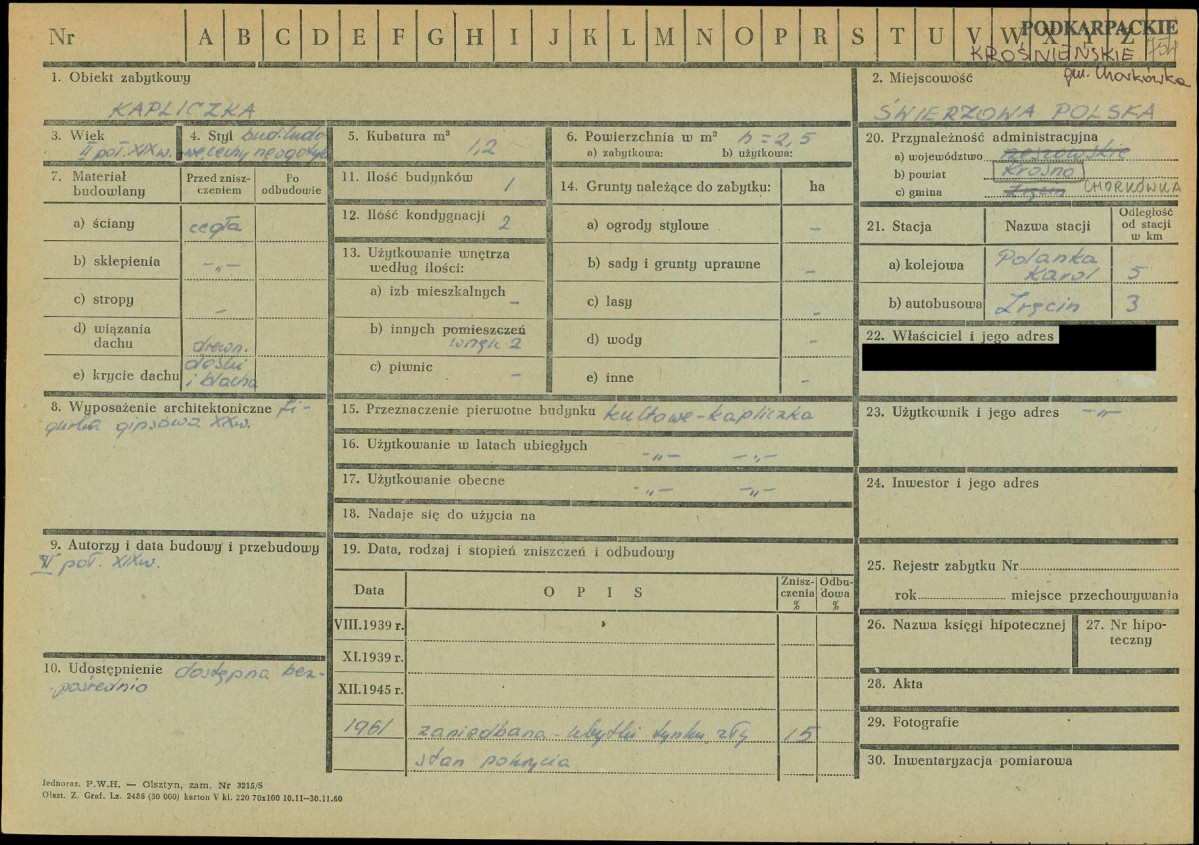 Nr A B C D E F G H I J K L M N O P R S T U V W X Y Z
PODKARPACKIE
KROŚNIEŃSKIE 754
gm. Chorkówka
1. Obiekt zabytkowy
KAPLICZKA
2. Miejscowość
ŚWIERZOWA POLSKA
3. Wiek
II poł. XIX w.
4. Styl bud. ludo-
we cechy neogotyk
5. Kubatura m³
1,2
6. Powierzchnia w m² h = 2,5
a) zabytkowa: b) użytkowa:
7. Materiał budowlany
Przed zniszczeniem
Po odbudowie
a) ściany cegła
b) sklepienia -„-
c) stropy -
d) wiązania dachu drewn.
e) krycie dachu deski
i blacha
8. Wyposażenie architektoniczne fi-
gurka gipsowa XX w.
9. Autorzy i data budowy i przebudowy
II poł. XIX w.
10. Udostępnienie dostępna bez-
-pośrednio
11. Ilość budynków 1
12. Ilość kondygnacji 2
13. Użytkowanie wnętrza
według ilości:
a) izb mieszkalnych -
b) innych pomieszczeń
wnęk 2
c) piwnic -
14. Grunty należące do zabytku: ha
a) ogrody stylowe -
b) sady i grunty uprawne -
c) lasy -
d) wody -
e) inne -
15. Przeznaczenie pierwotne budynku kultowe - kapliczka
16. Użytkowanie w latach ubiegłych
-„- -„-
17. Użytkowanie obecne
-„- -„-
18. Nadaje się do użycia na
19. Data, rodzaj i stopień zniszczeń i odbudowy
Data OPIS Zniszczenia % Odbudowa %
VIII.1939 r.
XI.1939 r.
XII.1945 r.
1961 zaniedbana - ubytki tynku, zły 15
stan pokrycia
20. Przynależność administracyjna
a) województwo rzeszowskie
b) powiat Krosno
c) gmina Zręcin CHORKÓWKA
21. Stacja Nazwa stacji Odległość od stacji w km
a) kolejowa Polanka
Karol 5
b) autobusowa Zręcin 3
22. Właściciel i jego adres
23. Użytkownik i jego adres -„-
24. Inwestor i jego adres
25. Rejestr zabytku Nr
rok miejsce przechowywania
26. Nazwa księgi hipotecznej
27. Nr hipo-
teczny
28. Akta
29. Fotografie
30. Inwentaryzacja pomiarowa
Jednoraz. P.W.H. — Olsztyn, zam. Nr 3215/S
Olszt. Z. Graf. Lz. 2485 (30 000) karton V kl. 220 70x100 10.11—30.11.60